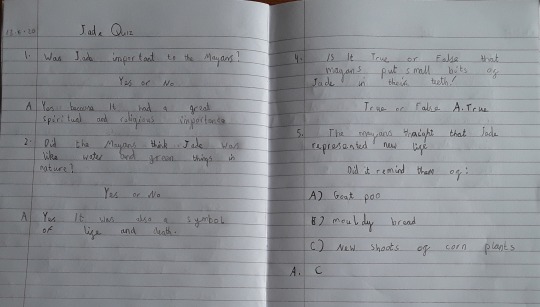 Jade Quiz
1. Was Jade important to the Mayans?
Yes or No
A Yes because It had a great
spiritual and religious importance
2. Did the Mayans think Jade was
like water and green things in
nature?
Yes or No
A Yes It was also a symbol
of life and death.
4. Is It True or False that
mayans put small bits of
Jade in their teeth?
True or False A. True
5. The mayans thought that Jade
represented new life
Did it remind them of:
A) Goat poo
B) mouldy bread
C) New shoots of corn plants
A. C